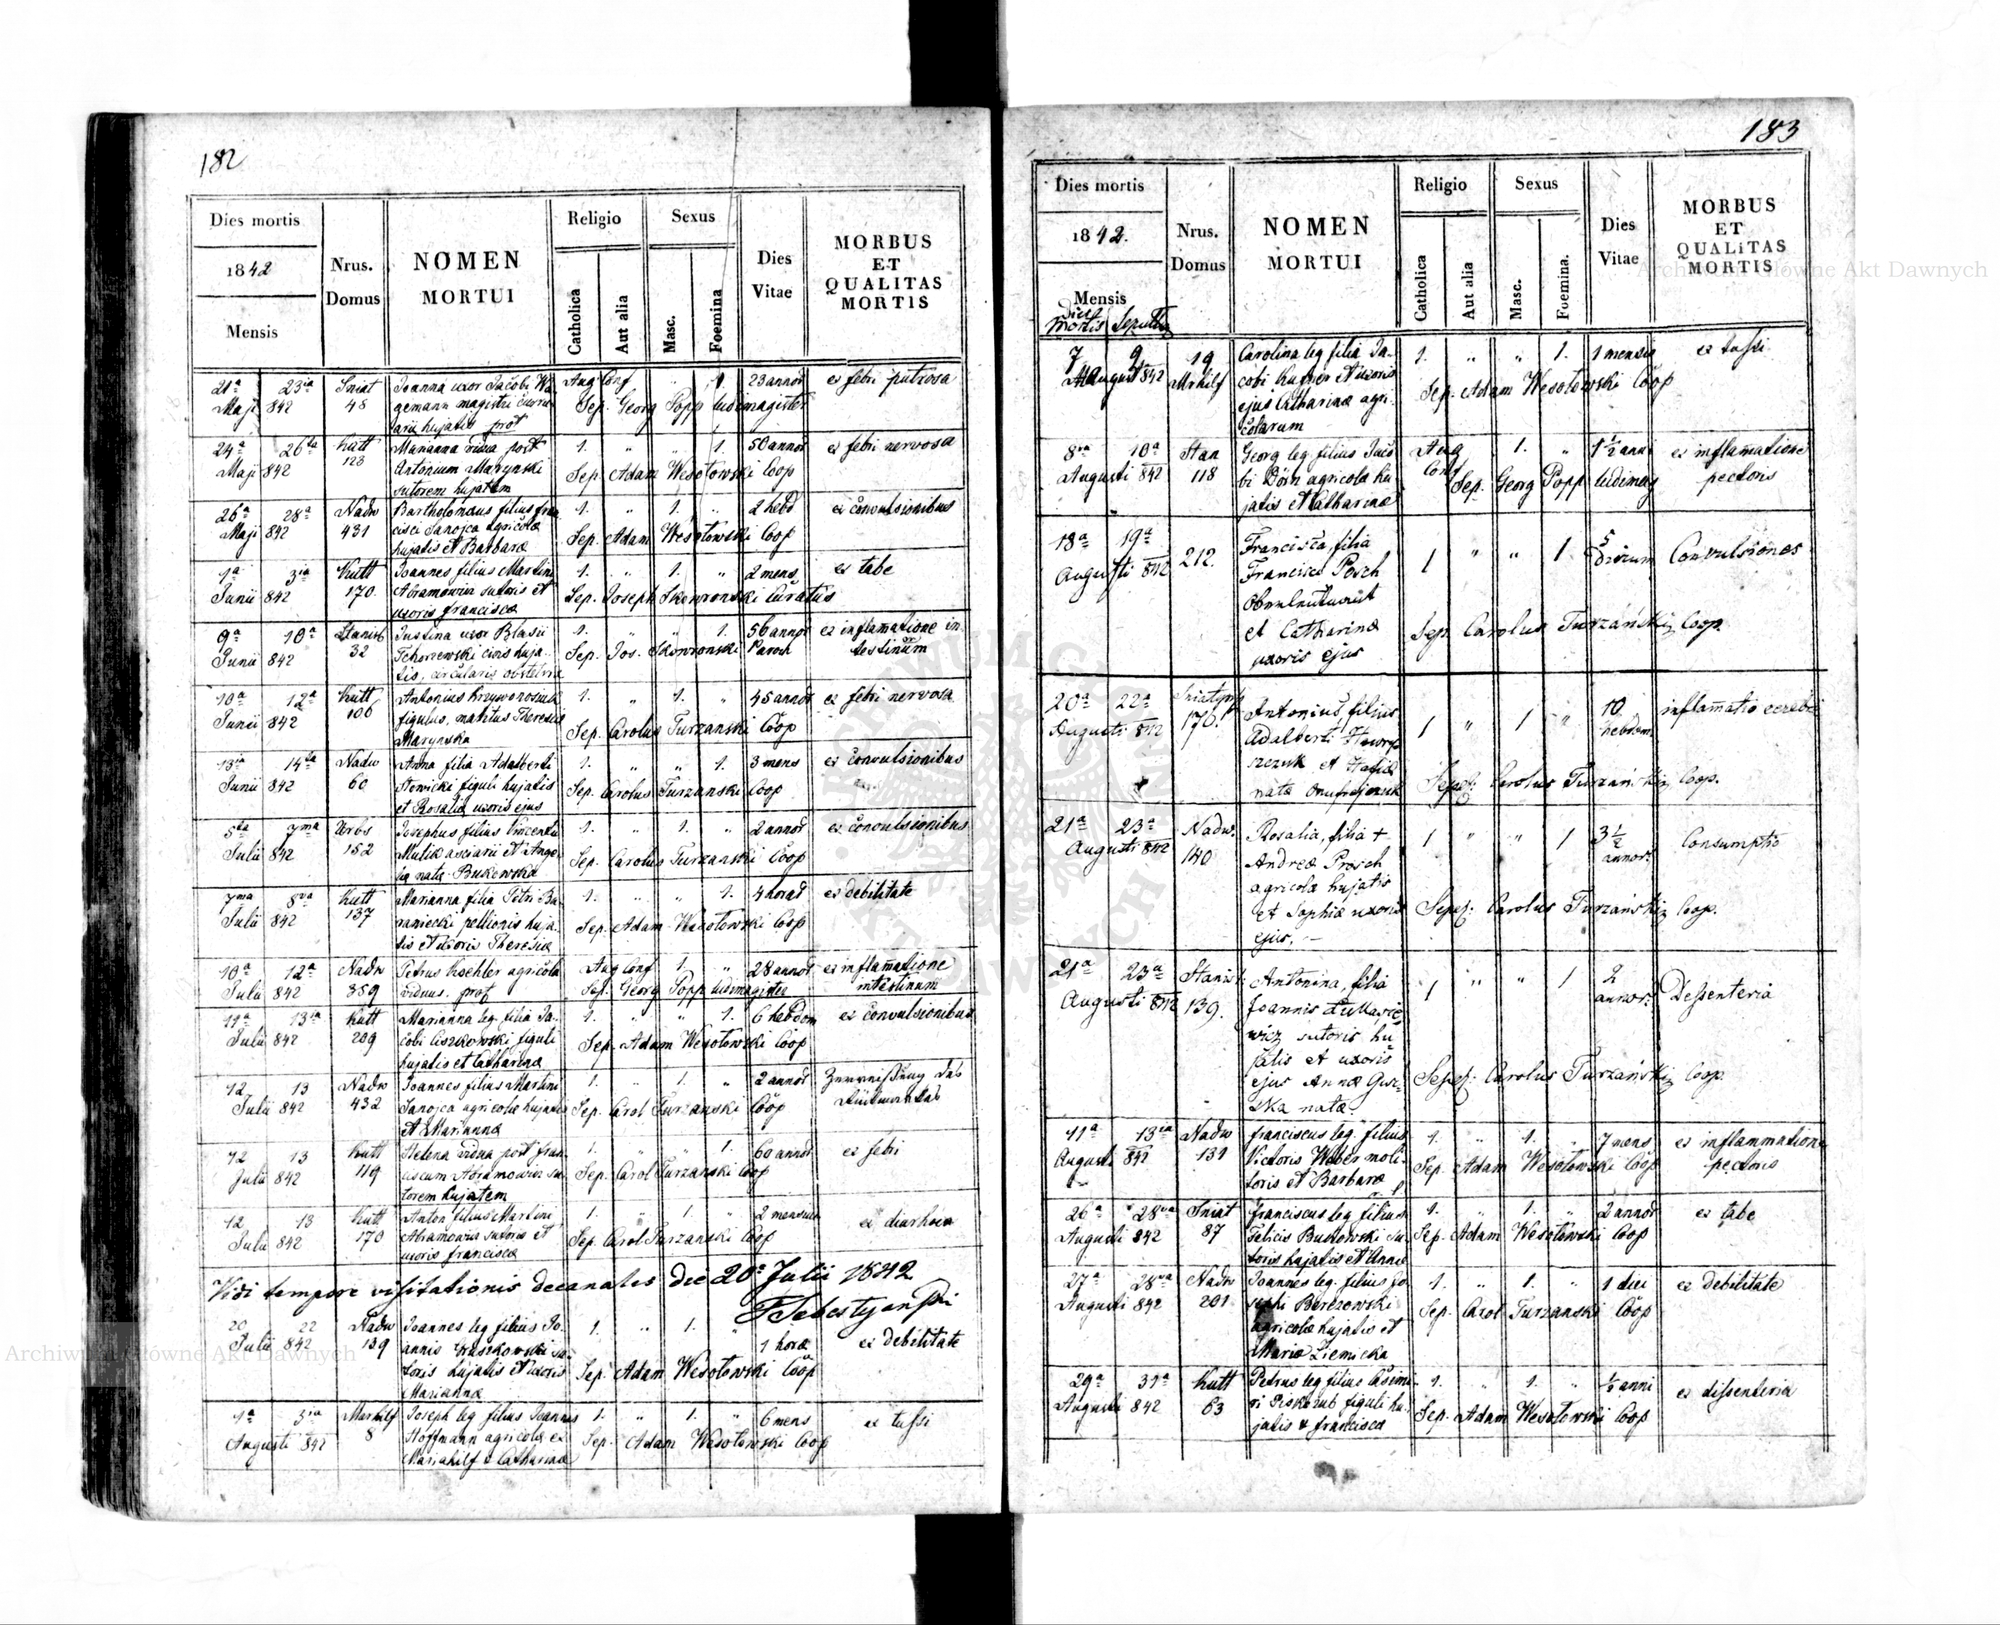 182
Dies mortis
1842
Mensis
Nrus.
Domus
NOMEN
MORTUI
Religio
Catholica
Aut alia
Sexus
Masc.
Foemina
Dies
Vitae
MORBUS
ET
QUALITAS
MORTIS
21ª 23ia Sniat Joanna uxor Jacobi Wa- Aug Conf " 1. 23 annor ex febri putrosa
Maji 842 48 gemann magistri Sep. Georg Popp ludimagister
hujatis prot
24ª 26ta Kutt Marianna vidua post 1. " " 1. 50 annor ex febri nervosa
Maji 842 128 Antonium Marynski Sep. Adam Wesołowski Coop
sutorem hujatem
26ª 28ª Nadw Bartholomæus filius fran 1. " 1. " 2 hebd ex convulsionibus
Maji 842 431 cisci Sanojca agricolæ Sep. Adam Wesołowski Coop
hujatis et Barbaræ
1ª 3ia Kutt Joannes filius Martini 1. " 1. " 2 mens ex tabe
Junii 842 170 Abramowicz sutoris et Sep. Joseph Skowronski Curatus
uxoris franciscæ
9ª 10ª Stanisł Justina uxor Blasii 1. " " 1. 56 annor ex inflamatione in
Junii 842 32 Tchorzewski civis huja- Sep. Jos. Skowronski Paroch testinum
tis, circularis obstetrix
10ª 12ª Kutt Antonius 1. " 1. " 45 annor ex febri nervosa
Junii 842 106 figulus, maritus Theresiæ Sep. Carolus Turzanski Coop
Marynska
13ia 14ta Nadw Anna filia Adalberti 1. " " 1. 3 mens ex convulsionibus
Junii 842 60 figuli hujatis Sep. Carolus Turzanski Coop
et Rosaliæ uxoris ejus
5ta 7ma Urbs Josephus filius Vincentii 1. " 1. " 2 annor ex convulsionibus
Julii 842 152 asciarii et Ange- Sep. Carolus Turzanski Coop
læ nata Bukowska
7ma 8va Kutt Marianna filia Petri Ba- 1. " " 1. 4 horar ex debilitate
Julii 842 137 raniecki pellionis huja- Sep. Adam Wesołowski Coop
tis et uxoris Theresiæ
10ª 12ª Nadw Petrus Koehler agricola Aug Conf 1. " 28 annor ex inflamatione
Julii 842 359 viduus. prot Sep. Georg Popp ludimagister intestinum
11ª 13ia Kutt Marianna leg filia Ja- 1. " " 1. 6 hebdom ex convulsionibus
Julii 842 209 cobi Ciszkowski figuli Sep. Adam Wesołowski Coop
hujatis et Catharinæ
12 13 Nadw Joannes filius Martini 1. " 1. " 2 annor
Julii 842 432 Sanojca agricolæ hujatis Sep. Carol Turzanski Coop
et Mariannæ
12 13 Kutt Helena vidua post fran- 1. " " 1. 60 annor ex febri
Julii 842 119 ciscum Abramowicz su- Sep. Carol Turzanski Coop
torem hujatem
12 13 Kutt Anton filius Martini 1. " 1. " 2 mensium ex diarhoea
Julii 842 170 Abramowicz sutoris et Sep. Carol Turzanski Coop
uxoris franciscæ
Vidi tempore visitationis decanalis die 20ª Julii 1842
20 22 Nadw Joannes leg filius Jo- 1. " 1. " 1 horæ ex debilitate
Julii 842 139 annis su- Sep. Adam Wesołowski Coop
toris hujatis et uxoris
Mariannæ
1ª 3ia Mariahilf Joseph leg filius Joannis 1. " 1. " 6 mens ex tussi
Augusti 842 8 Hoffmann agricolæ ex Sep. Adam Wesołowski Coop
Mariahilf & Catharinæ
183
Dies mortis
1842.
Mensis
Dies
mortis Sepultu
Nrus.
Domus
NOMEN
MORTUI
Religio
Catholica
Aut alia
Sexus
Masc.
Foemina.
Dies
Vitae
MORBUS
ET
QUALITAS
MORTIS
7 9 19 Carolina leg filia Ja- 1. " " 1. 1 mensis ex tussi
August 842 Mrhilf cobi Kufner et uxoris Sep. Adam Wesołowski Coop
ejus Catharinæ agri-
colarum
8va 10ª Stan Georg leg filius Jaco Aug 1. " 1½ anni ex inflamatione
Augusti 842 118 bi Börn agricola hu Conf Sep. Georg Popp ludimag pectoris
jatis et Catharinæ
18ª 19ª 212. Francisca, filia 1 " " 1 5 dierum Convulsiones
Augusti 842 Francisci Posch
et Catharinæ Sep. Carolus Turzański Coop.
uxoris ejus
20ª 22ª 170. Antonius, filius 1 " 1 " 10 hebdom. inflamatio cerebri
Augusti 842 Adalberti
et
nata Sepel: Carolus Turzański Coop.
21ª 23ª Nadw. Rosalia, filia 1 " " 1 3½ annor. Consumptio
Augusti 842 140 Andreæ Prosch
agricolæ hujatis
et Sophiæ uxoris Sepel: Carolus Turzański Coop.
ejus.
21ª 23ª Stanisł: Antonina, filia 1 " " 1 2 annor. Dessenteria
Augusti 842 139. Joannis Łukasie-
wicz sutoris hu-
jatis et uxoris
ejus Annæ Guz- Sepel: Carolus Turzański Coop.
ska nata.
11ª 13ia Nadw franciscus leg. filius 1. " 1. " 7 mens ex inflammatione
Augusti 842 131 Victoris Weber moli- Sep. Adam Wesołowski Coop pectoris
toris et Barbaræ
26ª 28va Sniat franciscus leg filius 1. " 1. " 2 annor ex tabe
Augusti 842 87 Felicis Butkowski su- Sep. Adam Wesołowski Coop
toris hujatis et Annæ
27ª 28va Nadw Joannes leg. filius Jo- 1. " 1. " 1 diei ex debilitate
Augusti 842 201 sephi Berezowski Sep. Carol Turzanski Coop
agricolæ hujatis et
Maria Ziemicka
29ª 31ª Kutt Petrus leg filius Casimi- 1. " 1. " ½ anni ex dissenteria
Augusti 842 63 ri Piskozub figuli hu- Sep. Adam Wesołowski Coop
jatis & francisca
Archiwum Główne Akt Dawnych
Archiwum Główne Akt Dawnych